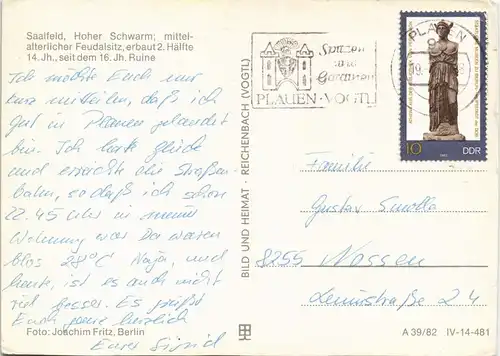 Saalfeld, Hoher Schwarm; mittel-
alterlicher Feudalsitz, erbaut 2. Hälfte
14. Jh., seit dem 16. Jh. Ruine
Ich möchte Euch nur
kurz mitteilen, daß ich
gut in Plauen gelandet
bin. Ich hatte Glück
und erreichte die Straßen-
bahn, so daß ich schon
22.45 Uhr in meiner
Wohnung war. Da waren
blos 28°C Naja, und
heute, ist es auch nicht
viel besser. Es grüßt
Euch ganz herzlich
Eure Sigrid
Foto: Joachim Fritz, Berlin
BILD UND HEIMAT · REICHENBACH (VOGTL)
Spitzen
und
Gardinen
PLAUEN · VOGTL
PLAUEN
10
DDR
Familie
Gustav Smolla
8255 Nossen
Leninstraße 24
A 39/82 IV-14-481